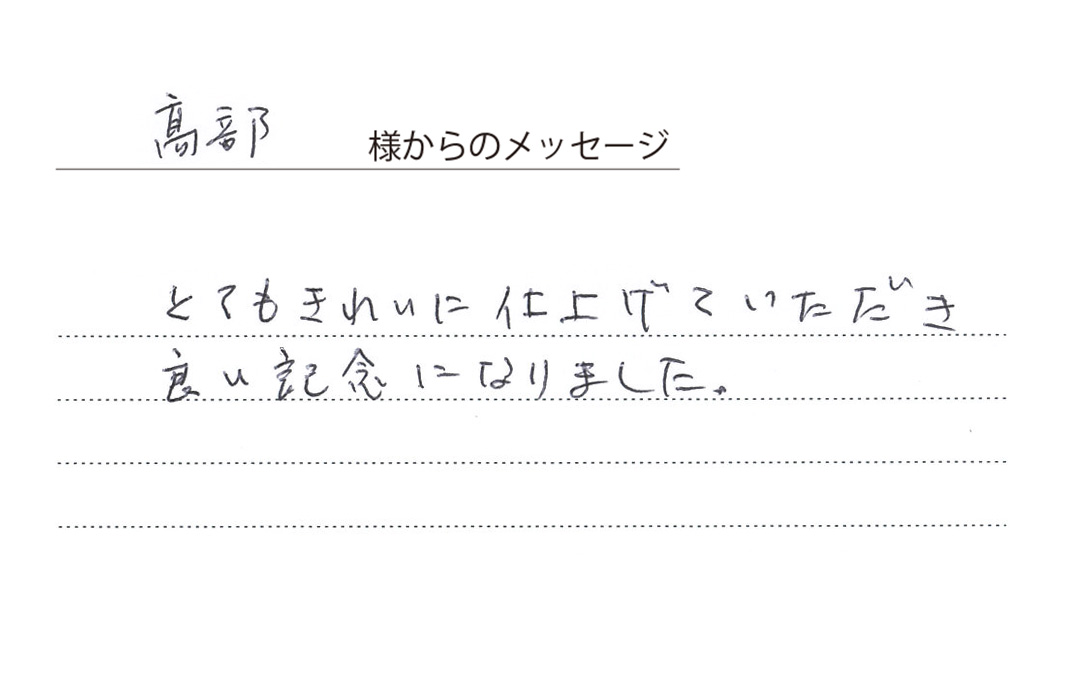 髙部 様からのメッセージ
とてもきれいに仕上げていただき
良い記念になりました。